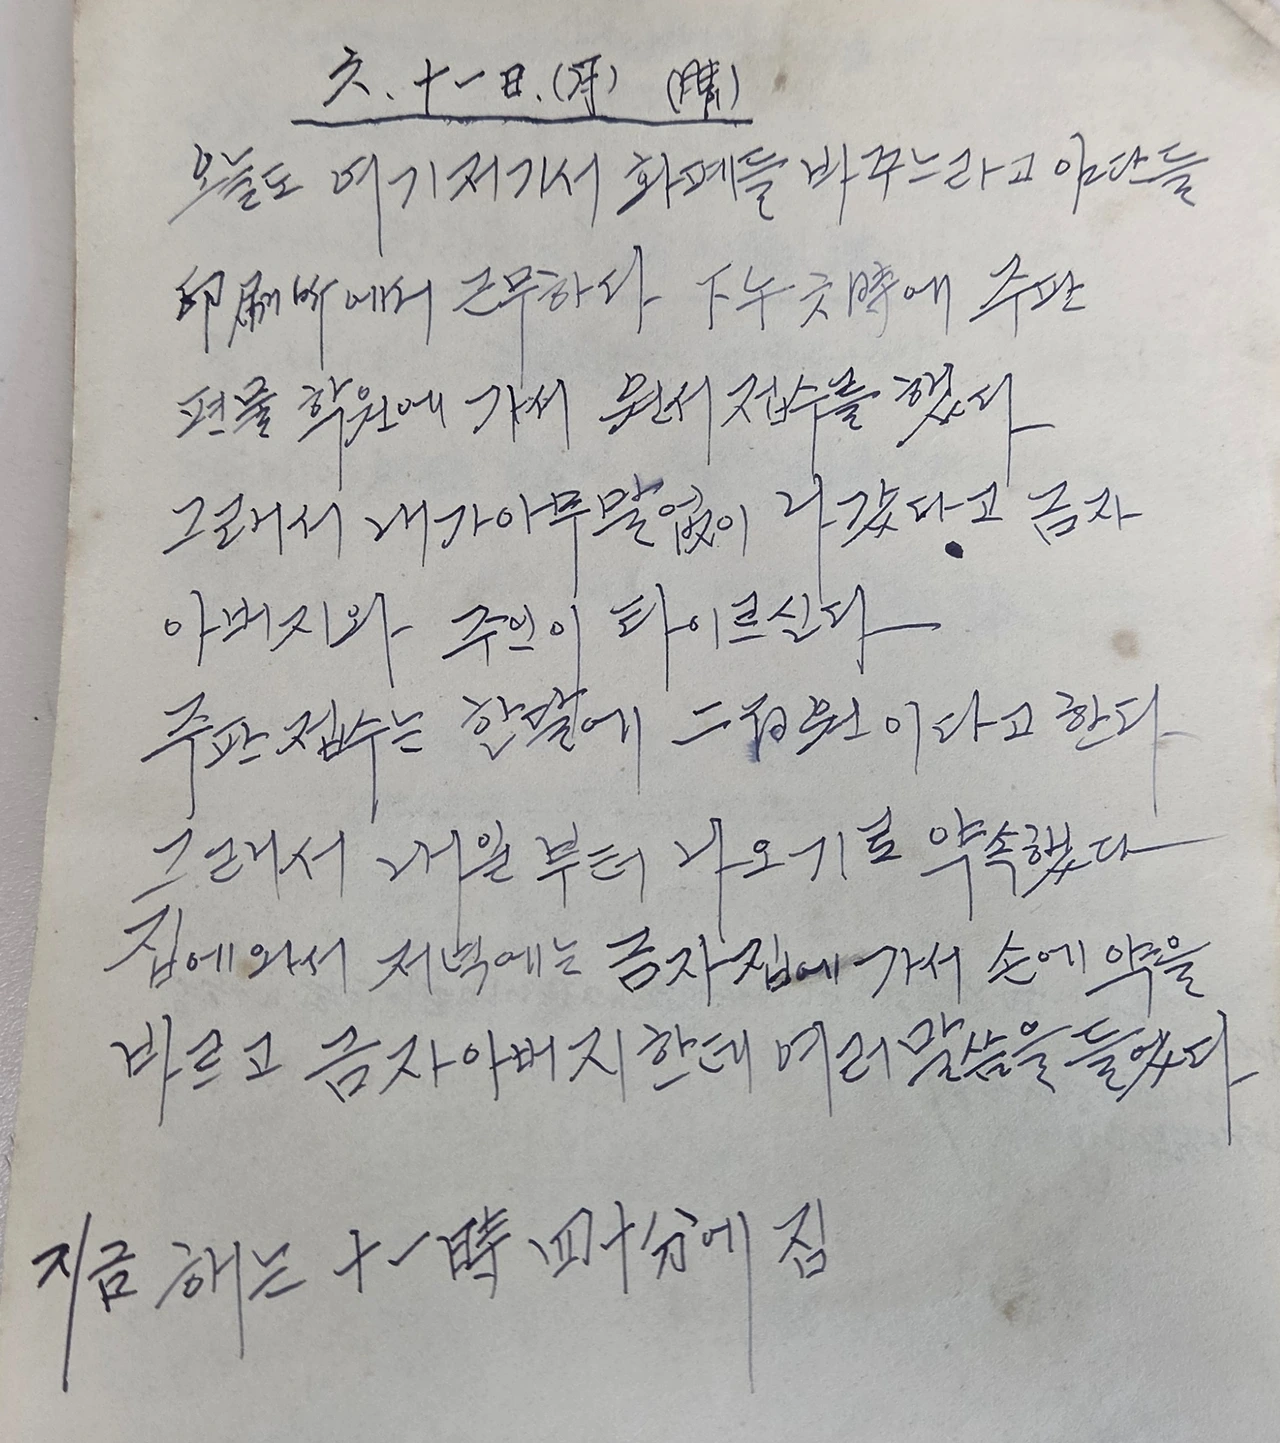 六. 十一日.(月) (晴)
오늘도 여기저기서 화폐들 바꾸느라고 야단들
印刷所에서 근무하다 下午 六時에 주판
편물 학원에 가서 원서접수를 했다
그래서 내가 아무말 없이 나갔다고 금자
아버지와 주인이 타이르신다
주판 접수는 한달에 二百원이다고 한다
그래서 내일부터 나오기로 약속했다
집에 와서 저녁에는 금자집에 가서 손에 약을
바르고 금자아버지한테 여러말씀을 들었다
지금 해는 十一時 四十分에 집